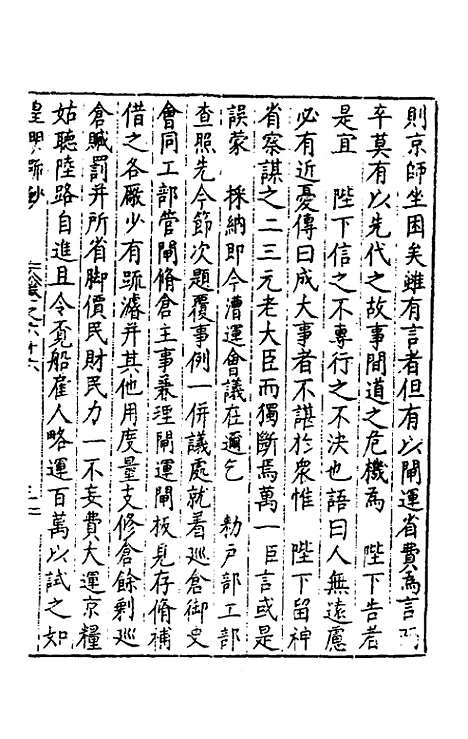 則京師坐困矣雖有言者但有以閘運省費為言而
卒莫有以先代之故事間道之危機為　陛下告者
是宜　陛下信之不專行之不決也語曰人無遠慮
必有近憂傳曰成大事者不謀於衆惟　陛下留神
省察謀之二三元老大臣而獨斷焉萬一臣言或是
誤蒙　採納即今漕運會議在邇乞　勑戶部工部
查照先今節次題覆事例一併議處就着巡倉御史
會同工部管閘脩倉主事兼理閘運閘板見存脩補
借之各厰少有疏濬并其他用度量支修倉餘剩巡
倉贓罰并所省脚價民財民力一不妄費大運京糧
姑聽陸路自進且令覔船雇人略運百萬以試之如
皇明疏鈔　卷之六十六